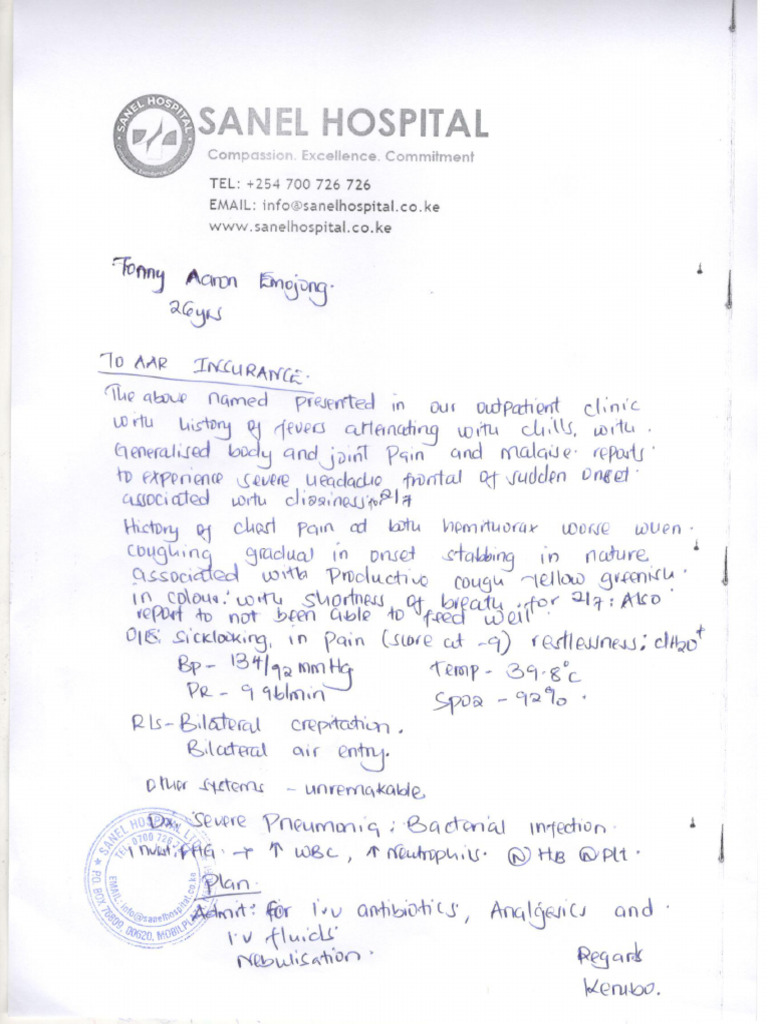 SANEL HOSPITAL
Compassion. Excellence. Commitment
TEL: +254 700 726 726
EMAIL: info@sanelhospital.co.ke
www.sanelhospital.co.ke
Tonny Aaron Emojong.
26yrs
TO AAR INSURANCE.
The above named presented in our outpatient clinic
with history of fevers alternating with chills, with
Generalised body and joint pain and malaise. reports
to experience severe headache frontal of sudden onset
associated with dizziness 2/7
History of chest pain at both hemithorax worse when
coughing gradual in onset stabbing in nature
associated with Productive cough Yellow greenish
in colour: with shortness of breath for 2/7: Also
report to not been able to feed well
O/E: Sicklooking, in pain (score at -9) restlessness; dH2O+
Bp - 134/92 mmHg Temp - 39.8°C
PR - 99b/min SpO2 - 92%.
R/s - Bilateral crepitation.
Bilateral air entry.
Other systems - unremarkable
Dx: Severe Pneumonia; Bacterial infection
→ ↑ WBC, ↑ Neutrophils. (N) HB (N) Plt.
Plan.
Admit: for i.v antibiotics, Analgesics and
i.v fluids
Nebulisation.
Regards
Kerubo.
SANEL HOSPITAL
EMAIL: info@sanelhospital.co.ke
P.O. BOX 76800, 00620, MOBILPL